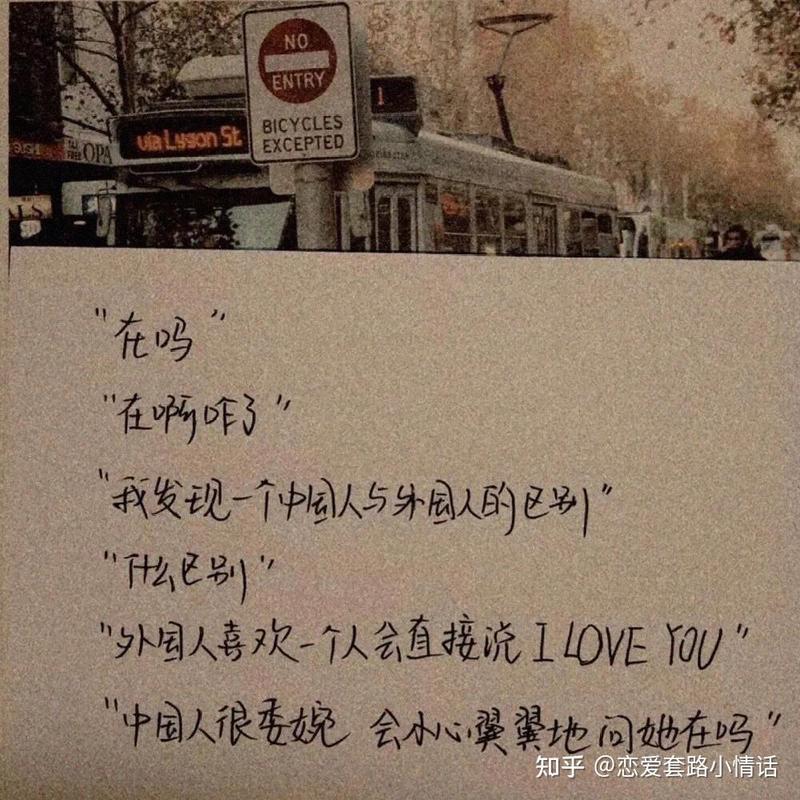 NO
ENTRY
BICYCLES
EXCEPTED
1
via Lygon St
SUSHI
OPA
"在吗"
"在啊咋了"
"我发现一个中国人与外国人的区别"
"什么区别"
"外国人喜欢一个人会直接说 I LOVE YOU"
"中国人很委婉 会小心翼翼地问她在吗"
知乎 @恋爱套路小情话